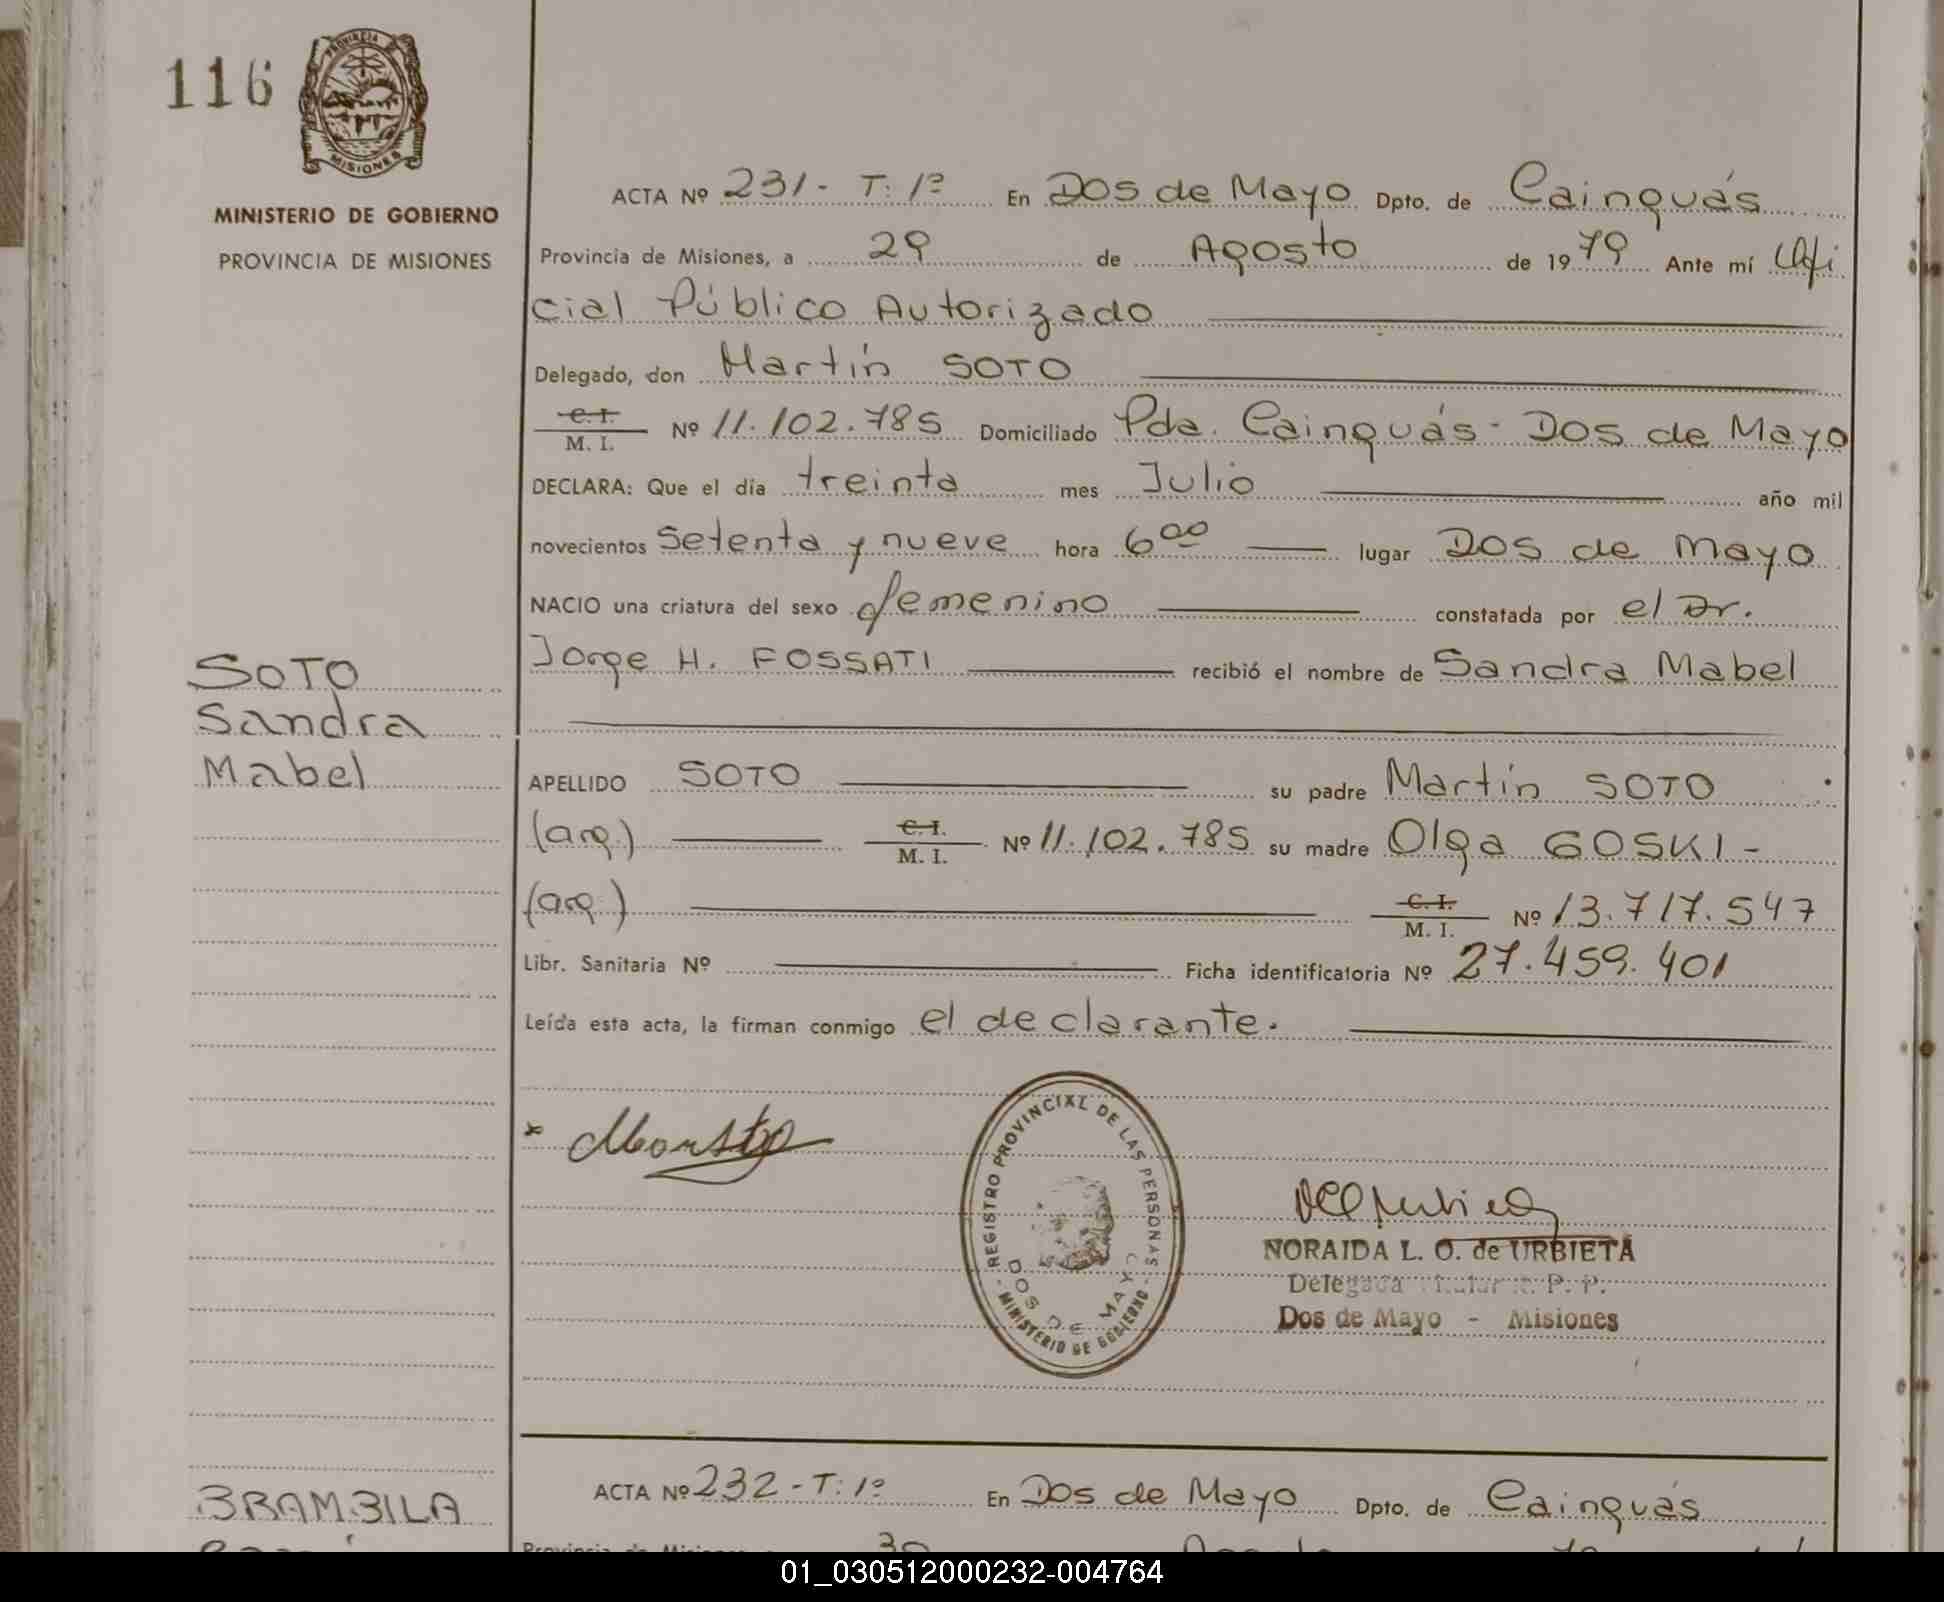 116
PROVINCIA
MISIONES
MINISTERIO DE GOBIERNO
PROVINCIA DE MISIONES
ACTA Nº 231- T: 1º En Dos de Mayo Dpto. de Cainguás
Provincia de Misiones, a 29 de Agosto de 1979 Ante mí Ofi
cial Público Autorizado
Delegado, don Martín SOTO
C. I.
M. I. Nº 11.102.785 Domiciliado Pda. Cainguás- Dos de Mayo
DECLARA: Que el día treinta mes Julio año mil
novecientos setenta y nueve hora 6 00 lugar Dos de Mayo
NACIO una criatura del sexo femenino constatada por el Dr.
Jorge H. FOSSATI recibió el nombre de Sandra Mabel
SOTO
Sandra
Mabel
APELLIDO SOTO su padre Martín SOTO
(arg.) C. I.
M. I. Nº 11.102.785 su madre Olga GOSKI-
(arg.) C. I.
M. I. Nº 13.717.547
Libr. Sanitaria Nº Ficha identificatoria Nº 27.459.401
Leída esta acta, la firman conmigo el declarante.
REGISTRO PROVINCIAL DE LAS PERSONAS
DOS DE MAYO
- MINISTERIO DE GOBIERNO -
NORAIDA L. O. de URBIETA
Delegada Titular R. P. P.
Dos de Mayo - Misiones
ACTA Nº 232-T: 1º En Dos de Mayo Dpto. de Cainguás
BRAMBILA
Provincia de Misiones 30 Agosto 79
01_030512000232-004764